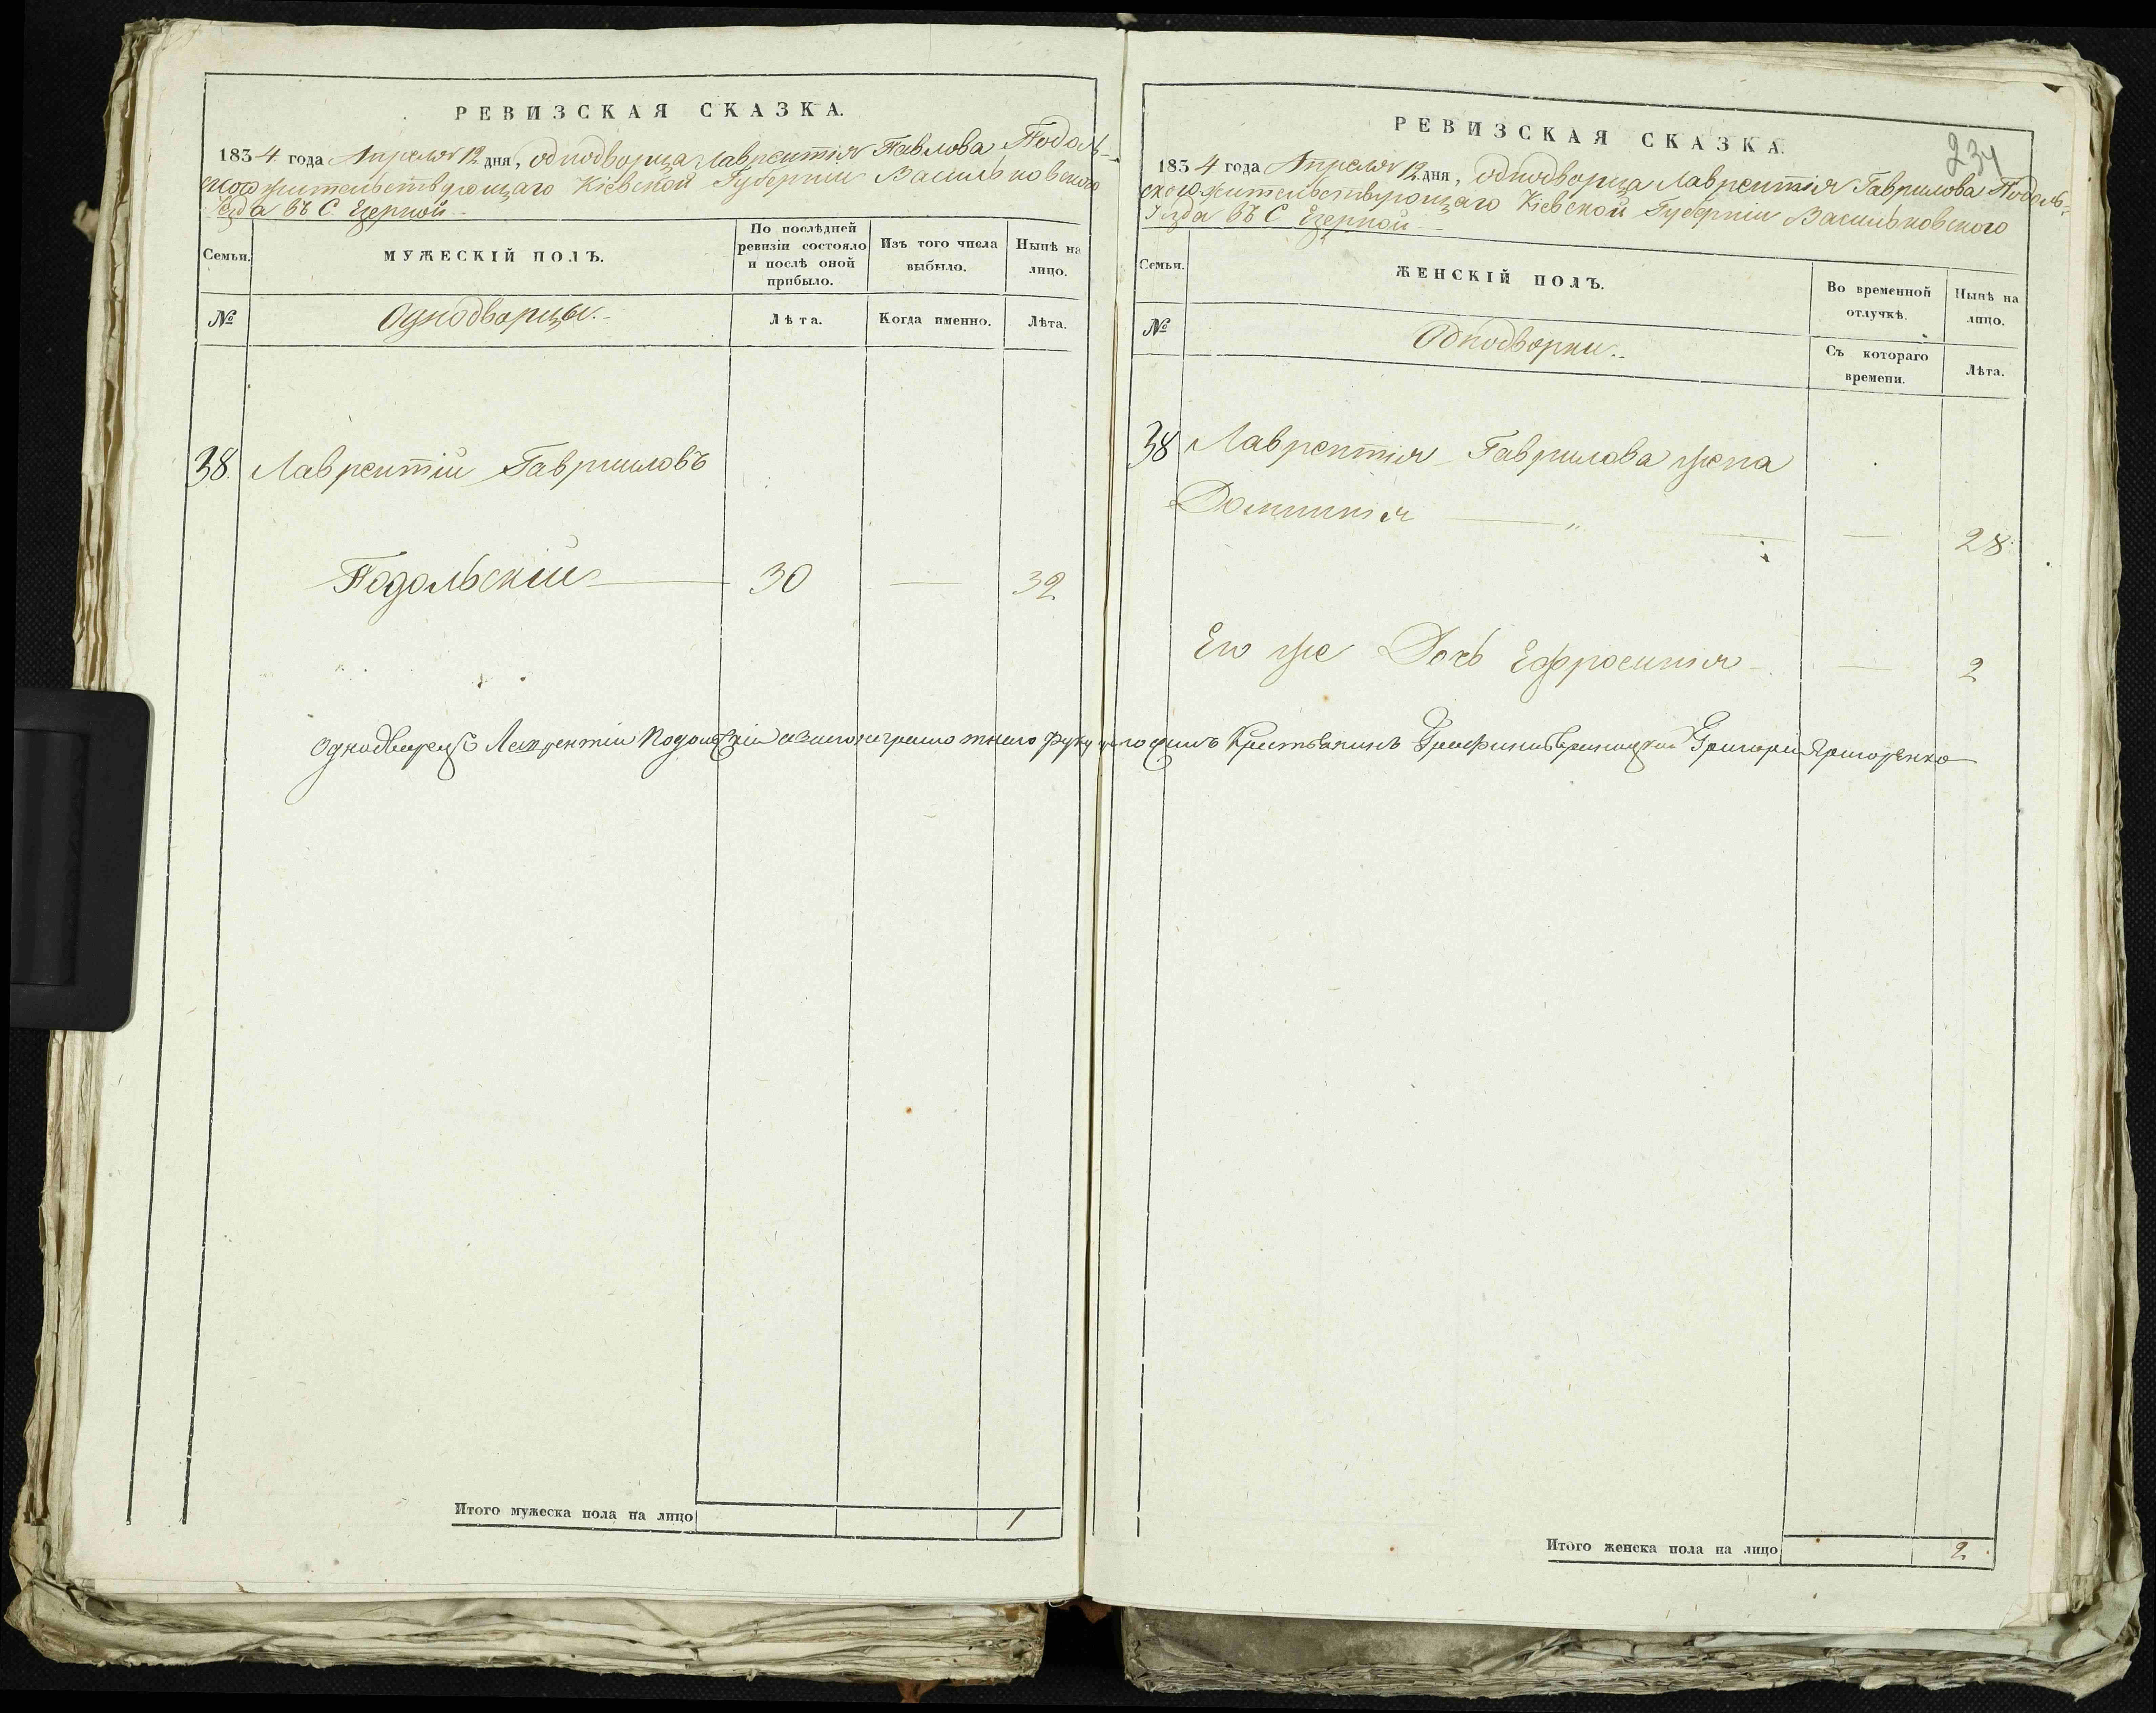 РЕВИЗСКАЯ СКАЗКА.
1834 года Апреля 12 дня, однодворца Лаврентія Павлова Подоль-
ского жительствующаго Кіевской Губерніи Васильковского
Уезда въ С. Езерной
Семьи.
МУЖЕСКІЙ ПОЛЪ.
По послѣдней
ревизіи состояло
и послѣ оной
прибыло.
Изъ того числа
выбыло.
Нынѣ на
лицо.
№
Однодворцы.
Лѣта.
Когда именно.
Лѣта.
38. Лаврентій Гавриловъ
Подольскій 30 — 32
Однодворецъ Лаврентій Подольскій а за него неграмотнаго руку
Итого мужеска пола на лицо 1
234
РЕВИЗСКАЯ СКАЗКА.
1834 года Апреля 12 дня, однодворца Лаврентія Гаврилова Подоль-
ского жительствующаго Кіевской Губерніи Васильковского
Уезда въ С Езерной
Семьи.
ЖЕНСКІЙ ПОЛЪ.
Во временной
отлучкѣ.
Нынѣ на
лицо.
№
Однодворки.
Съ котораго
времени.
Лѣта.
38 Лаврентія Гаврилова жена
Доминикія — " — — 28
Его же Дочь Ефросинія — — 2
крестьянинъ Григорій Григоренко
Итого женска пола на лицо 2